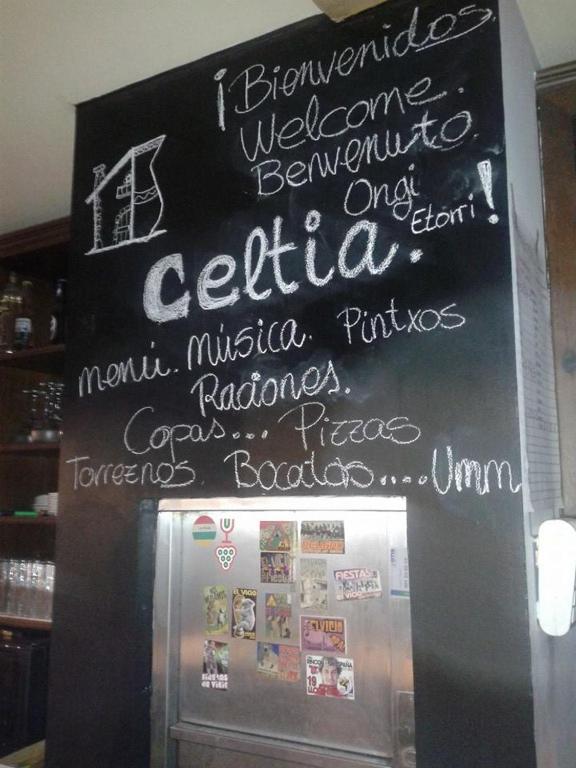 ¡Bienvenidos.
Welcome.
Benvenuto.
Ongi
Etorri!
celtia.
menú. música. Pintxos
Raciones.
Copas... Pizzas
Torreznos. Bocatas....Umm
EL VICIO
FIESTAS
EL VICIO
19